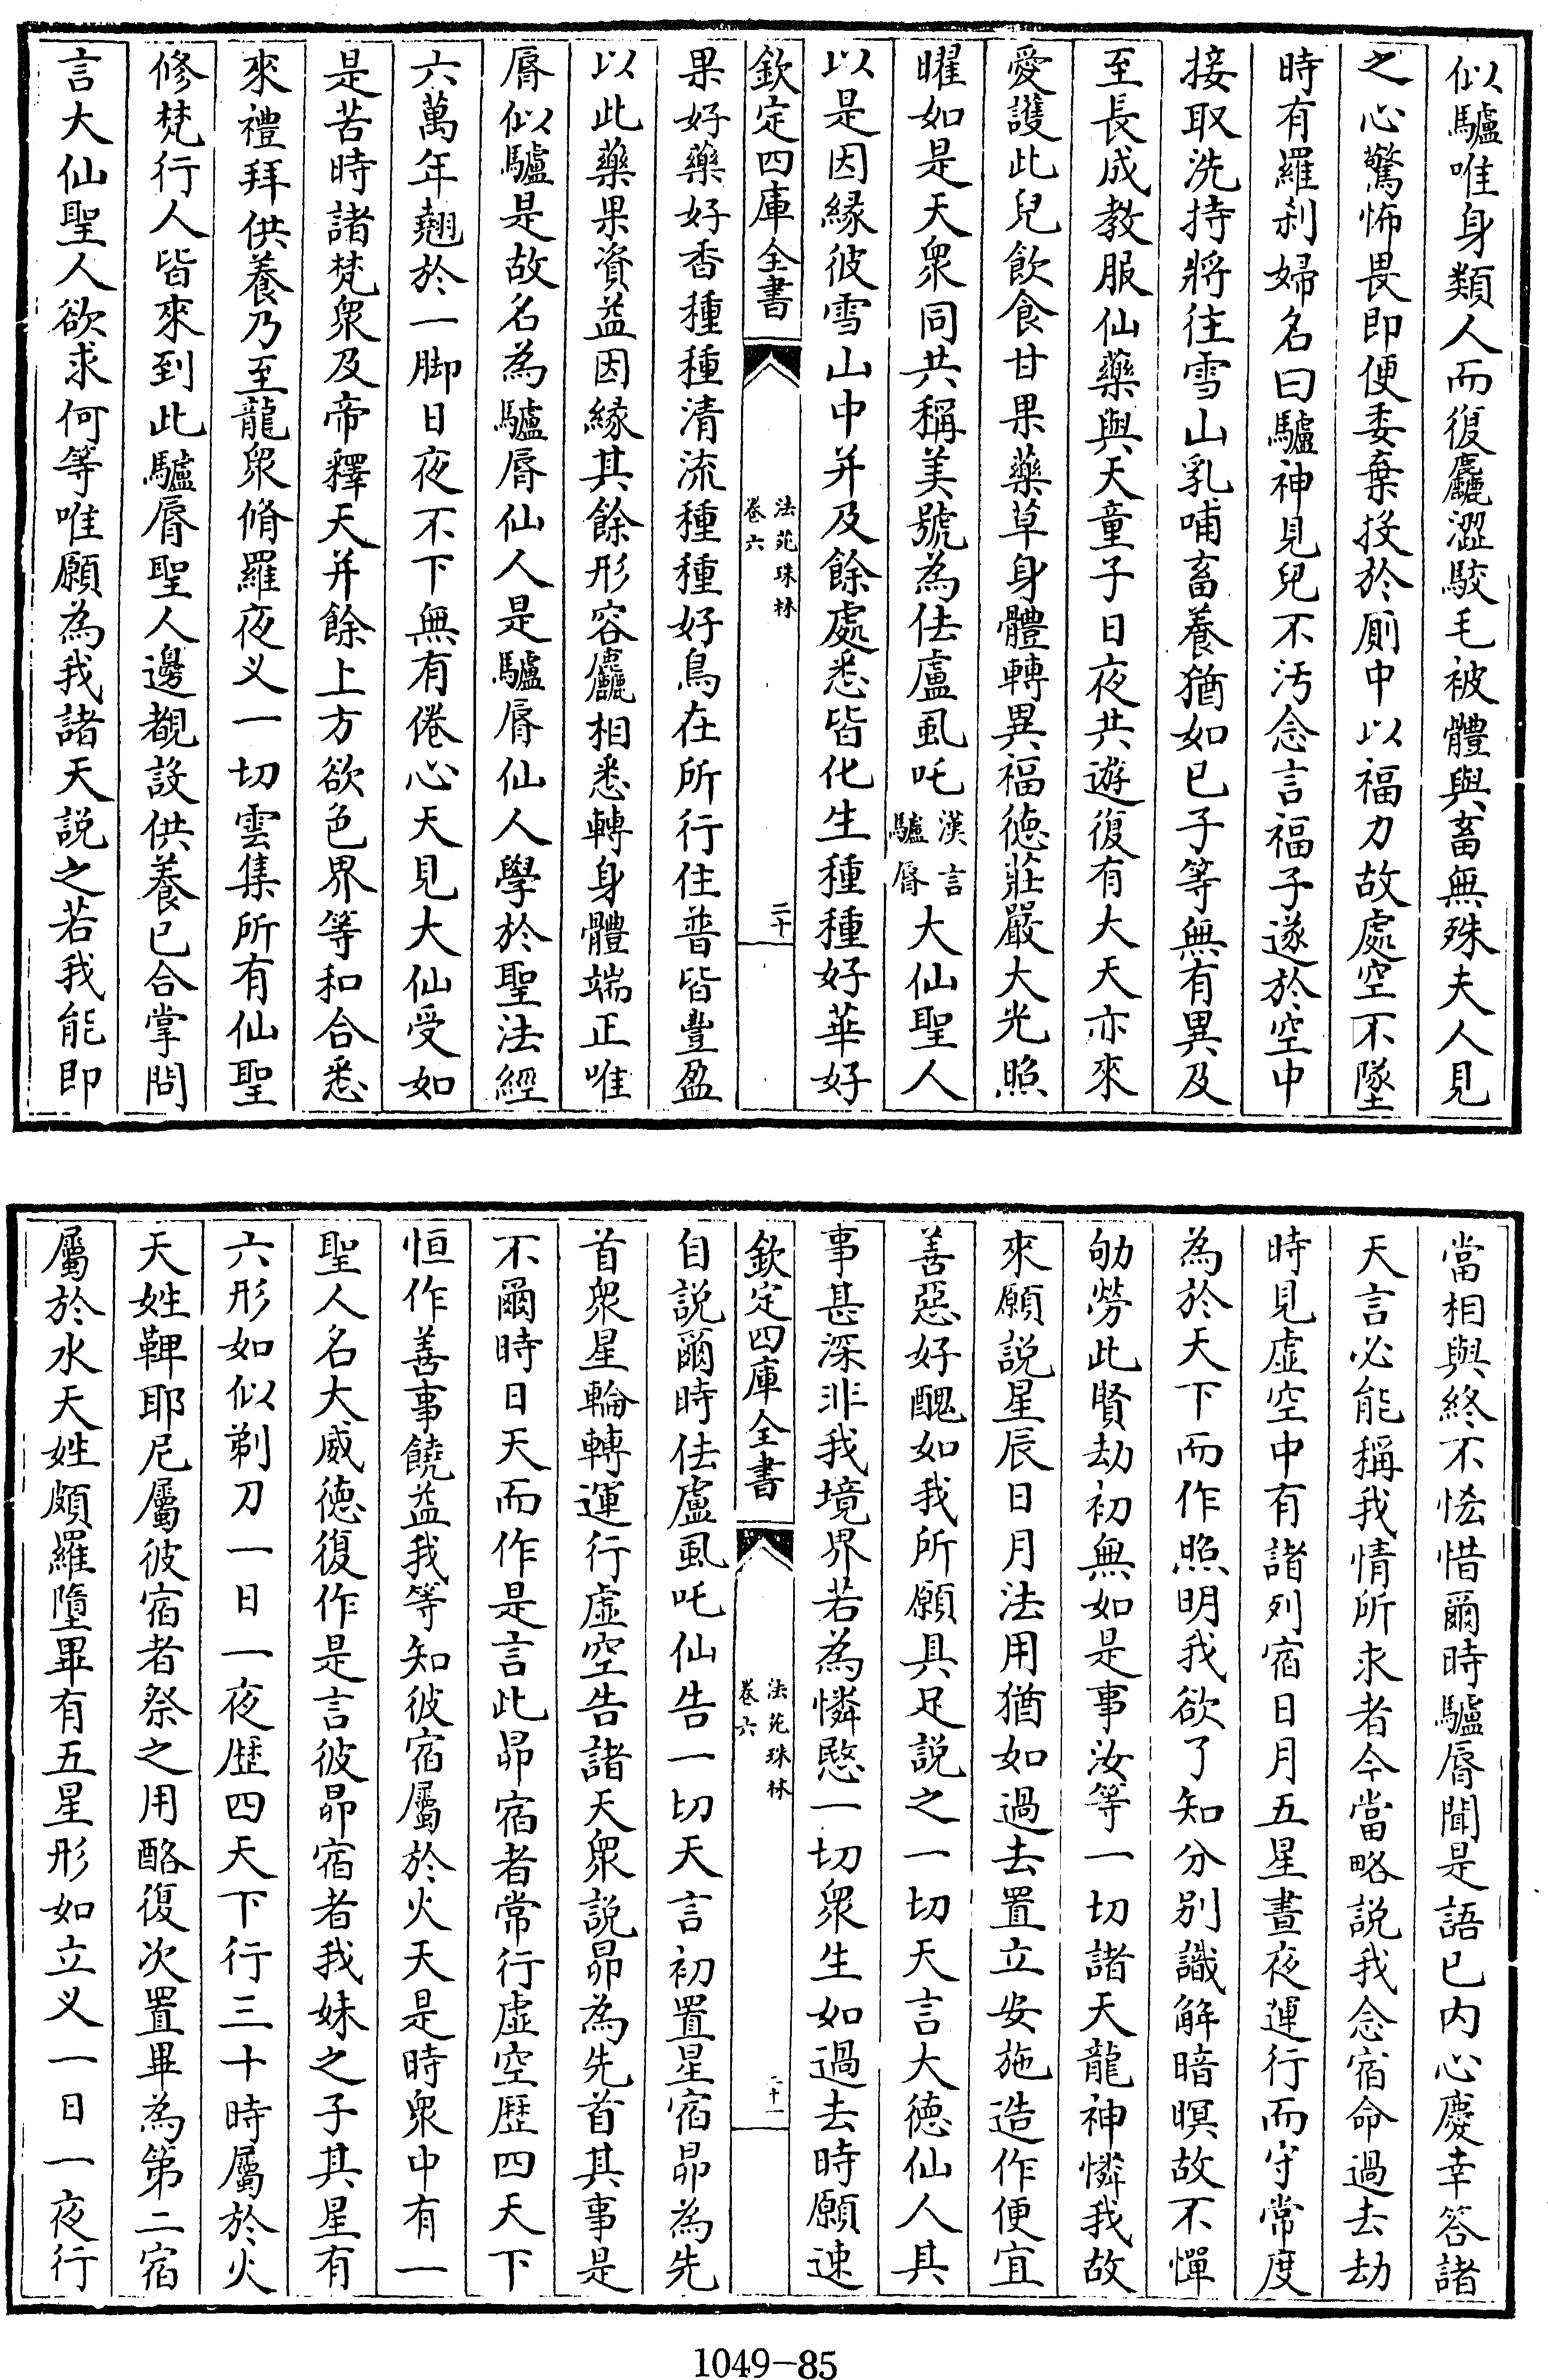 似驢唯身類人而復麤澀駮毛被體與畜無殊夫人見
之心驚怖畏即便委棄投於厠中以福力故處空不墜
時有羅刹婦名曰驢神見兒不汚念言福子遂於空中
接取洗持將往雪山乳哺畜養猶如已子等無有異及
至長成教服仙藥與天童子日夜共遊復有大天亦來
愛護此兒飲食甘果藥草身體轉異福徳莊嚴大光照
曜如是天衆同共稱美號為佉盧虱吒漢言驢脣大仙聖人
以是因縁彼雪山中并及餘處悉皆化生種種好華好
欽定四庫全書 法苑珠林 卷六 二十
果好藥好香種種清流種種好鳥在所行住普皆豐盈
以此藥果資益因縁其餘形容麤相悉轉身體端正唯
脣似驢是故名為驢脣仙人是驢脣仙人學於聖法經
六萬年翹於一脚日夜不下無有倦心天見大仙受如
是苦時諸梵衆及帝釋天并餘上方欲色界等和合悉
來禮拜供養乃至龍衆脩羅夜义一切雲集所有仙聖
修梵行人皆來到此驢脣聖人邊覩設供養已合掌問
言大仙聖人欲求何等唯願為我諸天説之若我能即
當相與終不恡惜爾時驢脣聞是語已内心慶幸答諸
天言必能稱我情所求者今當略説我念宿命過去劫
時見虚空中有諸列宿日月五星晝夜運行而守常度
為於天下而作照明我欲了知分别識解暗暝故不憚
劬勞此賢劫初無如是事汝等一切諸天龍神憐我故
來願説星辰日月法用猶如過去置立安施造作便宜
善惡好醜如我所願具足説之一切天言大徳仙人具
事甚深非我境界若為憐愍一切衆生如過去時願速
欽定四庫全書 法苑珠林 卷六 二十一
自説爾時佉盧虱吒仙告一切天言初置星宿昴為先
首衆星輪轉運行虚空告諸天衆説昴為先首其事是
不爾時日天而作是言此昴宿者常行虚空歴四天下
恒作善事饒益我等知彼宿屬於火天是時衆中有一
聖人名大威徳復作是言彼昴宿者我妹之子其星有
六形如似剃刀一日一夜歴四天下行三十時屬於火
天姓鞞耶尼屬彼宿者祭之用酪復次置畢為第二宿
屬於水天姓頗羅墮畢有五星形如立义一日一夜行
1049-85